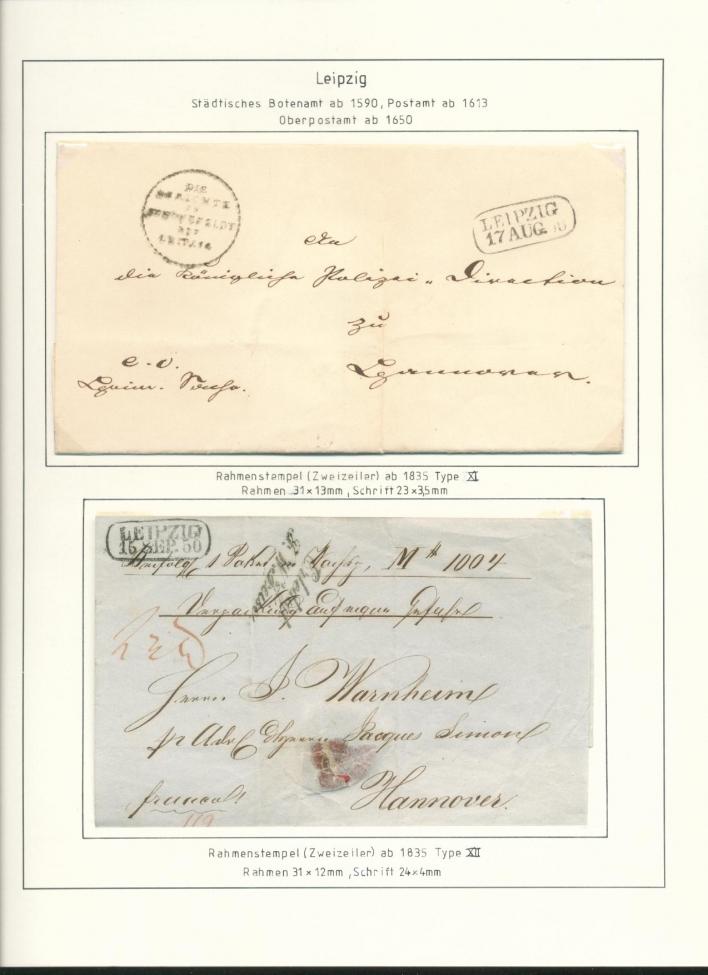 Leipzig
Städtisches Botenamt ab 1590, Postamt ab 1613
Oberpostamt ab 1650
DIE
LEIPZIG
LEIPZIG
17 AUG. 50
An
die Königliche Polizei-Direction
zu
Hannover.
Rahmenstempel (Zweizeiler) ab 1835 Type XI
Rahmen 31×13mm, Schrift 23×3,5mm
LEIPZIG
15 SEP. 50
1 Paket in M# 1004
Verpackung auf
Herrn J. Warnheim
pr Adr Jacques Simon
Hannover.
Rahmenstempel (Zweizeiler) ab 1835 Type XII
Rahmen 31×12mm, Schrift 24×4mm